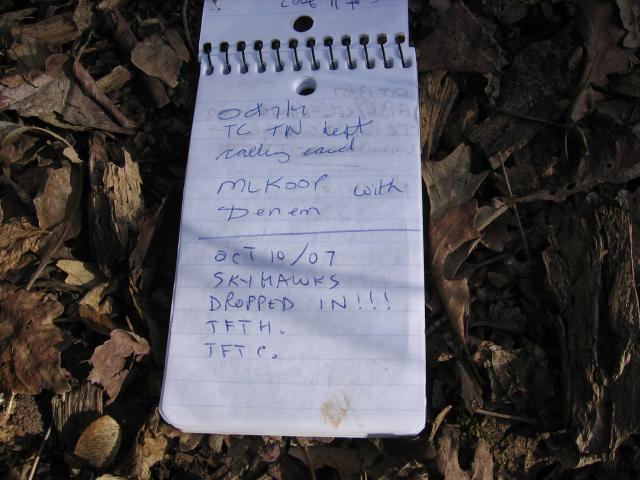 TC TN left
calling card
MLKOOP with
Denem
OCT 10/07
SKYHAWKS
DROPPED IN!!!
TFTH.
TFTC.